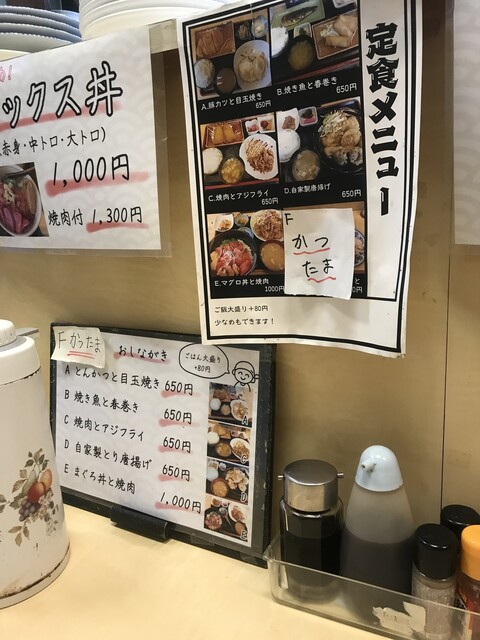 ックス丼
赤身・中トロ・大トロ)
1,000円
焼肉付 1,300円
定食メニュー
A.豚カツと目玉焼き
650円
B.焼き魚と春巻き
650円
C.焼肉とアジフライ
650円
D.自家製唐揚げ
650円
E.マグロ丼と焼肉
1000円
F
かつ
たま
と
ご飯大盛り+80円
少なめもできます!
Fかつたま
おしながき
ごはん大盛り
+80円
A とんかつと目玉焼き 650円
B 焼き魚と春巻き 650円
C 焼肉とアジフライ 650円
D 自家製とり唐揚げ 650円
E まぐろ丼と焼肉 1,000円
A
C
D
E